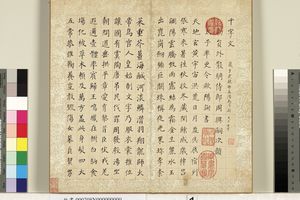 千字文
員外散騎侍郎周興嗣次韻
天地玄黃宇宙洪荒日月盈昃辰宿列
張寒來暑往秋收冬藏閏餘成歲律呂
調陽雲騰致雨露結為霜金生麗水玉
出崑岡劍號巨闕珠稱夜光果珍李柰
菜重芥薑海鹹河淡鱗潛羽翔龍師火
帝鳥官人皇始制文字乃服衣裳推位
讓國有虞陶唐弔民伐罪周發殷湯坐
朝問道垂拱平章愛育黎首臣伏戎羌
遐邇壹體率賓歸王鳴鳳在樹白駒食
場化被草木賴及萬方蓋此身髮四大
五常恭惟鞠養豈敢毀傷女慕貞絜男